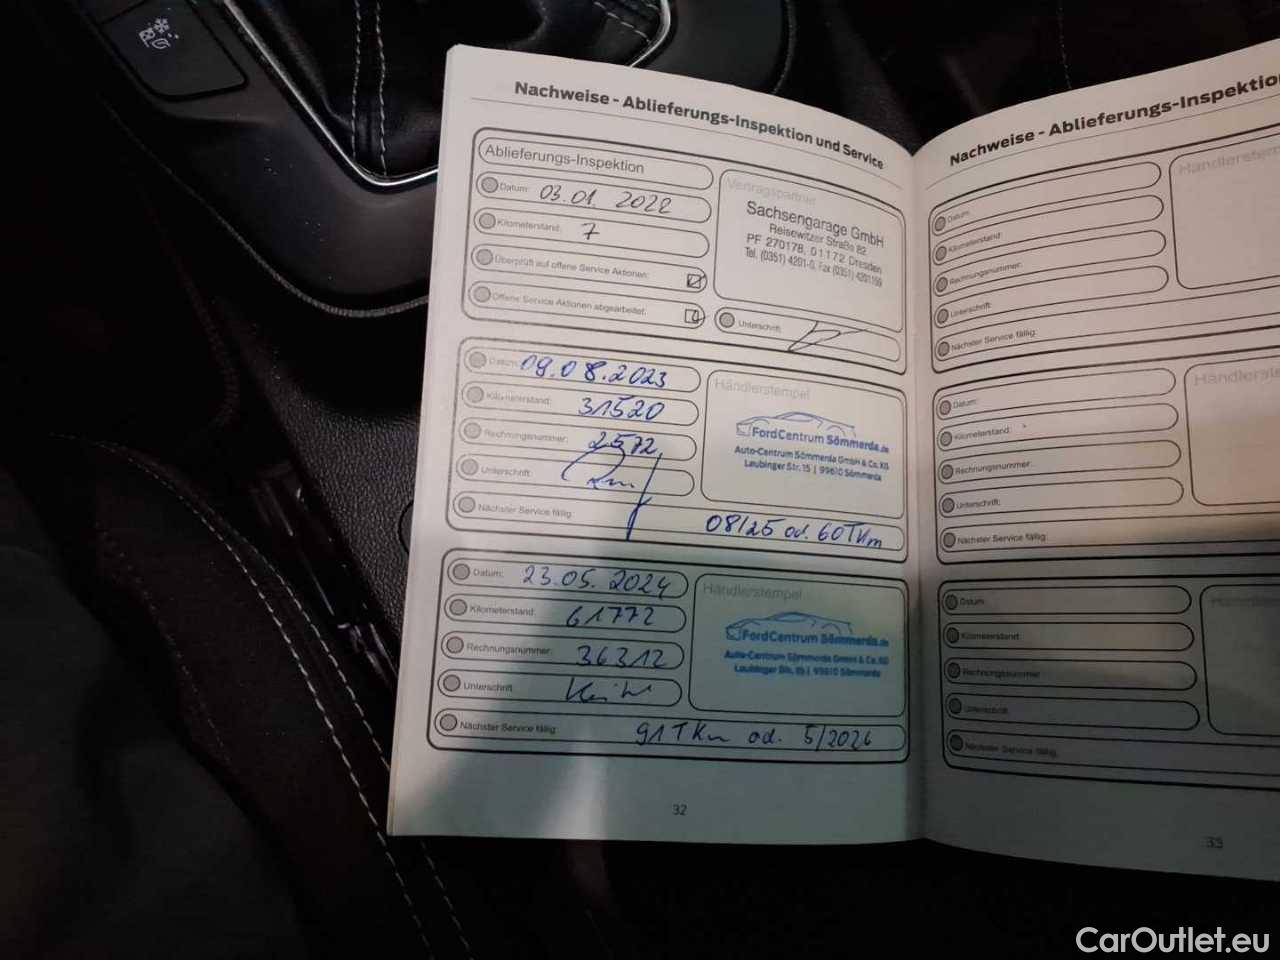 Nachweise - Ablieferungs-Inspektion und Service
Ablieferungs-Inspektion
Datum: 03.01 2022
Kilometerstand: 7
Überprüft auf offene Service Aktionen:
Offene Service Aktionen abgearbeitet:
Vertragspartner
Sachsengarage GmbH
Reisewitzer Straße 82
PF 270178, 01172 Dresden
Tel. (0351) 4201-0, Fax (0351) 4201199
Unterschrift:
Datum: 09.08.2023
Kilometerstand: 31520
Rechnungsnummer: 2572
Unterschrift:
Nächster Service fällig: 08/25 od. 60TKm
Händlerstempel
FordCentrum Sömmerda.de
Auto-Centrum Sömmerda GmbH & Co. KG
Laubinger Str. 15 | 99610 Sömmerda
Datum: 23.05.2024
Kilometerstand: 61772
Rechnungsnummer: 36312
Unterschrift:
Nächster Service fällig: 91TKm od. 5/2026
Händlerstempel
FordCentrum Sömmerda.de
Auto-Centrum Sömmerda GmbH & Co. KG
Laubinger Str. 15 | 99610 Sömmerda
32
Nachweise - Ablieferungs-Inspektio
Datum:
Kilometerstand:
Rechnungsnummer:
Unterschrift:
Nächster Service fällig:
Händlerstemp
Datum:
Kilometerstand:
Rechnungsnummer:
Unterschrift:
Nächster Service fällig:
Händlerste
Datum:
Kilometerstand:
Rechnungsnummer:
Unterschrift:
Nächster Service fällig:
33
CarOutlet.eu